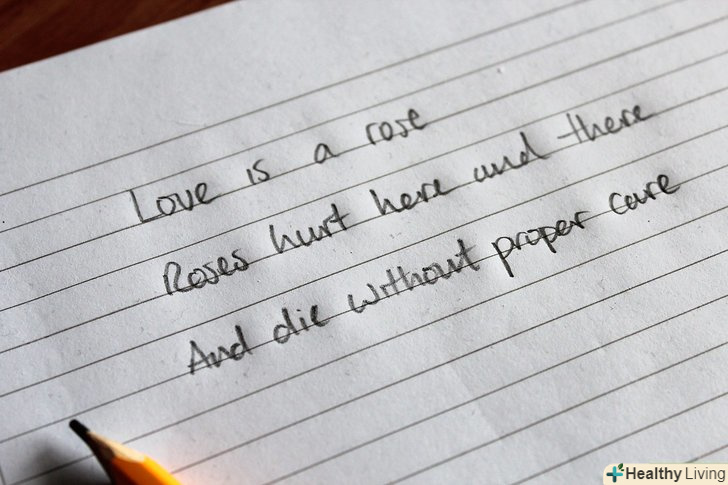 Love is a rose
Roses hurt here and there
And die without proper care
Healthy Living